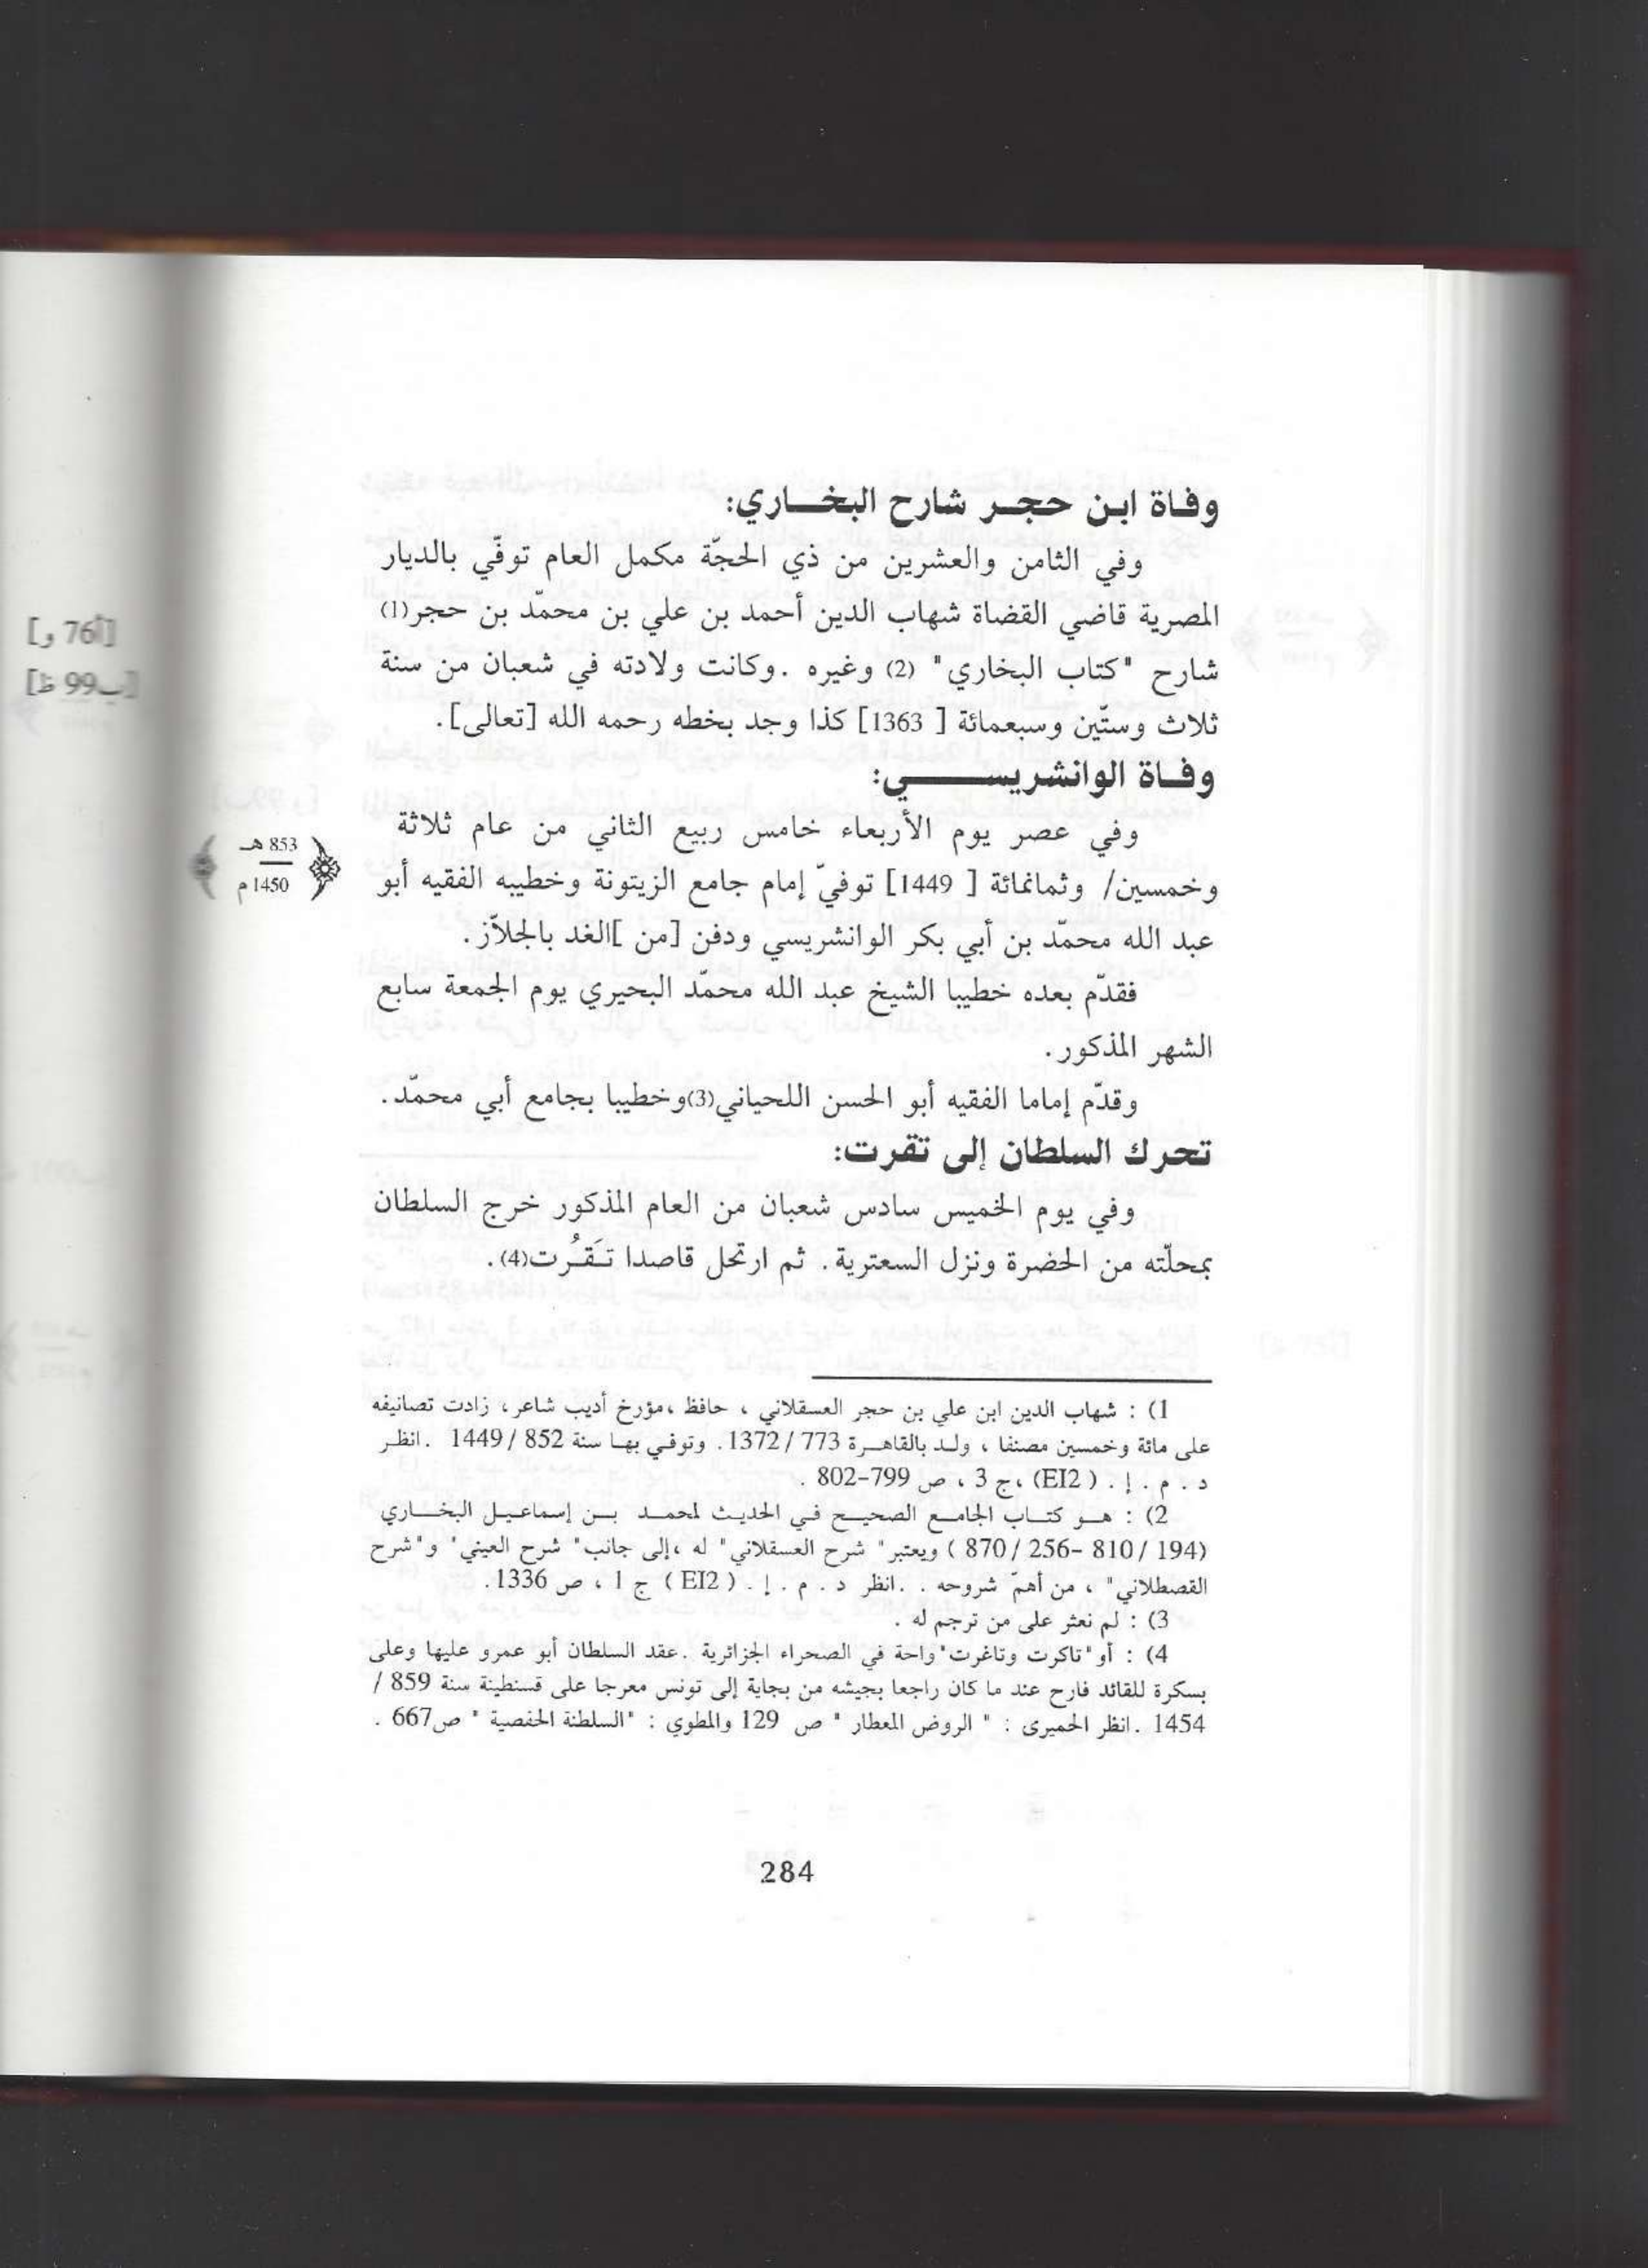 وفاة ابن حجر شارح البخاري:
وفي الثامن والعشرين من ذي الحجّة مكمل العام توفّي بالديار
المصرية قاضي القضاة شهاب الدين أحمد بن علي بن محمّد بن حجر(1)
شارح "كتاب البخاري" (2) وغيره .وكانت ولادته في شعبان من سنة
ثلاث وستّين وسبعمائة [ 1363] كذا وجد بخطه رحمه الله [تعالى].
وفاة الوانشريسي:
وفي عصر يوم الأربعاء خامس ربيع الثاني من عام ثلاثة
853 هـ
1450 م
وخمسين/ وثمانمائة [ 1449] توفيّ إمام جامع الزيتونة وخطيبه الفقيه أبو
عبد الله محمّد بن أبي بكر الوانشريسي ودفن [من ]الغد بالجلاّز.
فقدّم بعده خطيبا الشيخ عبد الله محمّد البحيري يوم الجمعة سابع
الشهر المذكور.
وقدّم إماما الفقيه أبو الحسن اللحياني(3)وخطيبا بجامع أبي محمّد.
تحرك السلطان إلى تقرت:
وفي يوم الخميس سادس شعبان من العام المذكور خرج السلطان
بمحلّته من الحضرة ونزل السعترية. ثم ارتحل قاصدا تَقُرت(4).
1) : شهاب الدين ابن علي بن حجر العسقلاني ، حافظ ،مؤرخ أديب شاعر، زادت تصانيفه
على مائة وخمسين مصنفا ، ولد بالقاهرة 773 /1372. وتوفي بها سنة 852 / 1449 .انظر
د . م . إ . ( EI2) ،ج 3 ، ص 799-802 .
2) : هو كتاب الجامع الصحيح في الحديث لمحمد بن إسماعيل البخاري
(194 /810 -256 /870 ) ويعتبر" شرح العسقلاني" له ،إلى جانب" شرح العيني" و"شرح
القصطلاني" ، من أهمّ شروحه . .انظر د . م . إ . ( EI2 ) ج 1 ، ص 1336.
3) : لم نعثر على من ترجم له .
4) : أو"تاكرت وتاغرت"واحة في الصحراء الجزائرية .عقد السلطان أبو عمرو عليها وعلى
بسكرة للقائد فارح عند ما كان راجعا بجيشه من بجاية إلى تونس معرجا على قسنطينة سنة 859 /
1454 .انظر الحميرى : " الروض المعطار " ص 129 والمطوي : "السلطنة الحفصية " ص667 .
284
[أ76 و]
[ب99 ظ]